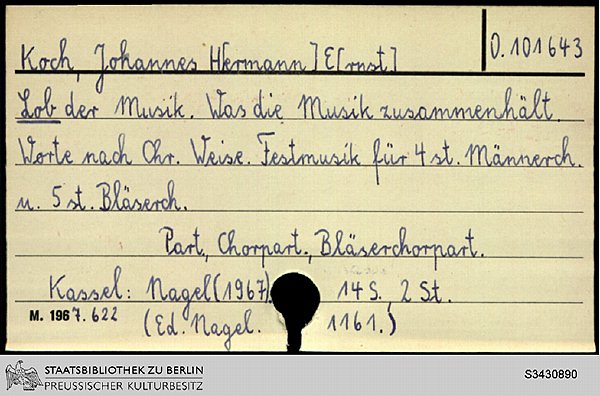 Koch, Johannes H[ermann] E[rnst]
O. 101643
Lob der Musik. Was die Musik zusammenhält.
Worte nach Chr. Weise. Festmusik für 4 st. Männerch.
u. 5 st. Bläserch.
Part., Chorpart., Bläserchorpart.
Kassel: Nagel (1967). 14 S., 2 St.
M. 1967.622
(Ed. Nagel. 1161.)
STAATSBIBLIOTHEK ZU BERLIN
PREUSSISCHER KULTURBESITZ
S3430890